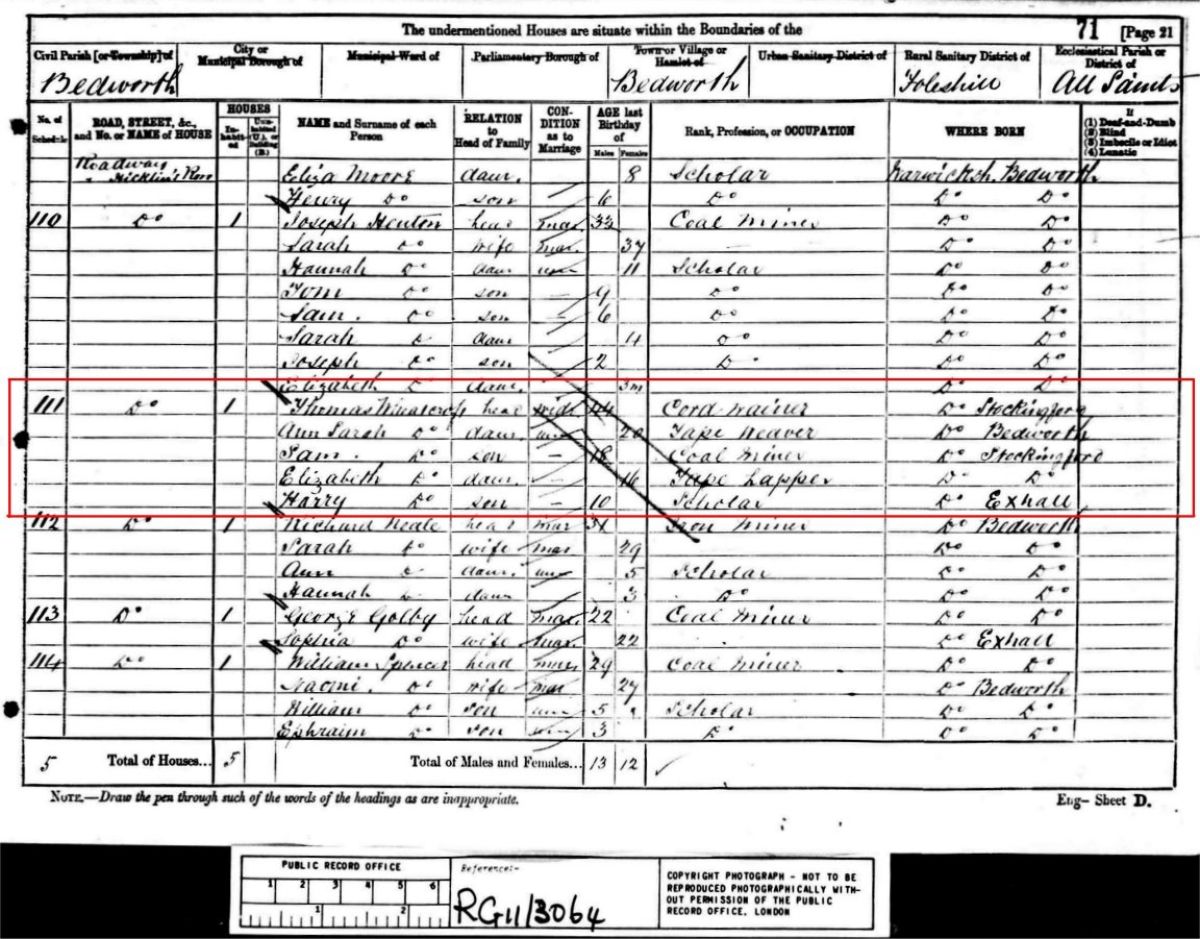 The undermentioned Houses are situate within the Boundaries of the 71 [Page 21
Civil Parish [or Township] of City or Municipal Borough of Municipal Ward of Parliamentary Borough of Town or Village or Hamlet of Urban Sanitary District of Rural Sanitary District of Ecclesiastical Parish or District of
Bedworth Bedworth Foleshill All Saints
No. of Schedule ROAD, STREET, &c., and No. or NAME of HOUSE HOUSES Inhabited Uninhabited (U.), or Building (B.) NAME and Surname of each Person RELATION to Head of Family CONDITION as to Marriage AGE last Birthday of Males Females Rank, Profession, or OCCUPATION WHERE BORN If (1) Deaf-and-Dumb (2) Blind (3) Imbecile or Idiot (4) Lunatic
Roadway
Hicklin's Row Eliza Moore daur. 8 Scholar Warwicksh. Bedworth
Henry Do son 6 Do Do Do
110 Do 1 Joseph Henton head mar. 33 Coal Miner Do Do
Sarah Do wife mar. 37 Do Do
Hannah Do daur un 11 Scholar Do Do
Tom Do son — 9 Do Do Do
Sam. Do son — 6 Do Do Do
Sarah Do daur 4 Do Do Do
Joseph Do son 2 Do Do Do
Elizabeth Do daur. 3m Do Do
111 Do 1 Thomas head widr 44 Cordwainer Do Stockingford
Ann Sarah Do daur. un 20 Tape Weaver Do Bedworth
Sam. Do son — 18 Coal Miner Do Stockingford
Elizabeth Do daur. — 16 Tape Lapper Do Do
Harry Do son — 10 Scholar Do Exhall
112 Do 1 Richard Neale head mar Iron Miner Do Bedworth
Sarah Do wife mar 29 Do Do
Ann Do daur. un 5 Scholar Do Do
Hannah Do daur 3 Do Do Do
113 Do 1 George Golby head mar. 22 Coal Miner Do Do
Sophia Do wife mar. 22 Do Exhall
114 Do 1 William Spencer head mar 29 Coal Miner Do Do
Naomi. Do wife mar 27 Do Bedworth
William Do son un 5 Scholar Do Do
Ephraim Do son un 3 Do Do Do
5 Total of Houses... 5 Total of Males and Females... 13 12
NOTE.—Draw the pen through such of the words of the headings as are inappropriate. Eng— Sheet D.
PUBLIC RECORD OFFICE
1 2 3 4 5 6
1 2
Reference:-
RG11/3064
COPYRIGHT PHOTOGRAPH - NOT TO BE
REPRODUCED PHOTOGRAPHICALLY WITH-
OUT PERMISSION OF THE PUBLIC
RECORD OFFICE, LONDON